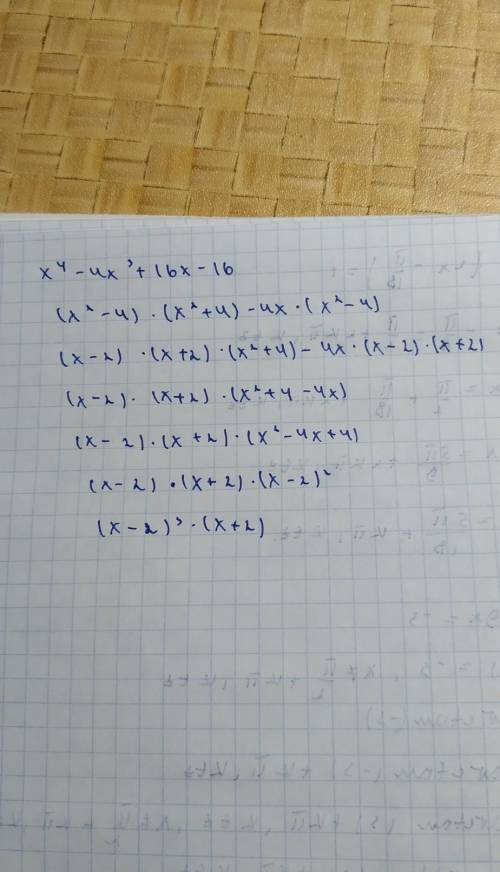 x⁴ - 4x³ + 16x - 16
(x² - 4) · (x² + 4) - 4x · (x² - 4)
(x - 2) · (x + 2) · (x² + 4) - 4x · (x - 2) · (x + 2)
(x - 2) · (x + 2) · (x² + 4 - 4x)
(x - 2) · (x + 2) · (x² - 4x + 4)
(x - 2) · (x + 2) · (x - 2)²
(x - 2)³ · (x + 2)